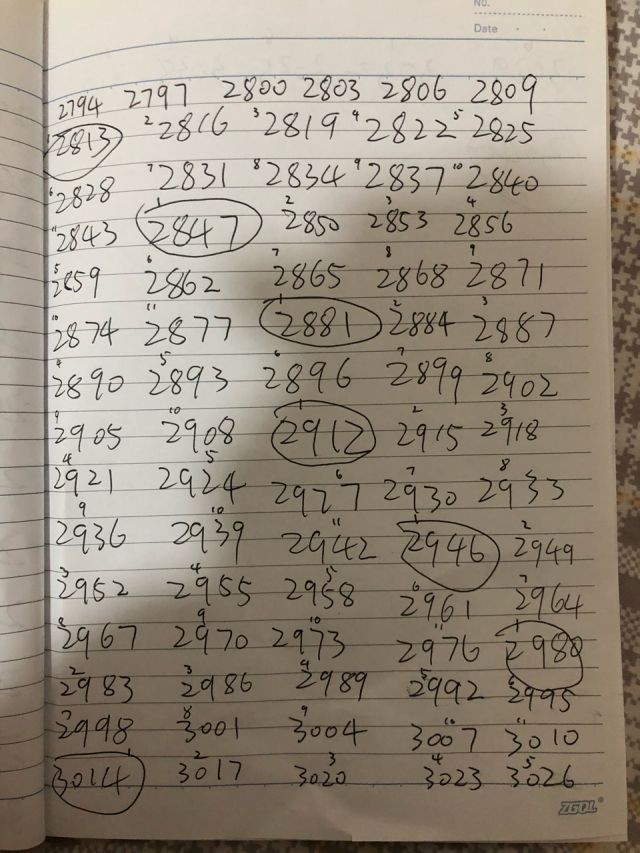 No.
Date
2794 2797 2800 2803 2806 2809
1 2813 2 2816 3 2819 4 2822 5 2825
6 2828 7 2831 8 2834 9 2837 10 2840
11 2843 1 2847 2 2850 3 2853 4 2856
5 2859 6 2862 7 2865 8 2868 9 2871
10 2874 11 2877 1 2881 2 2884 3 2887
4 2890 5 2893 6 2896 7 2899 8 2902
9 2905 10 2908 1 2912 2 2915 3 2918
4 2921 5 2924 6 2927 7 2930 8 2933
9 2936 10 2939 11 2942 1 2946 2 2949
3 2952 4 2955 5 2958 6 2961 7 2964
8 2967 9 2970 10 2973 11 2976 1 2980
2 2983 3 2986 4 2989 5 2992 6 2995
7 2998 8 3001 9 3004 10 3007 11 3010
1 3014 2 3017 3 3020 4 3023 5 3026
ZGOL®